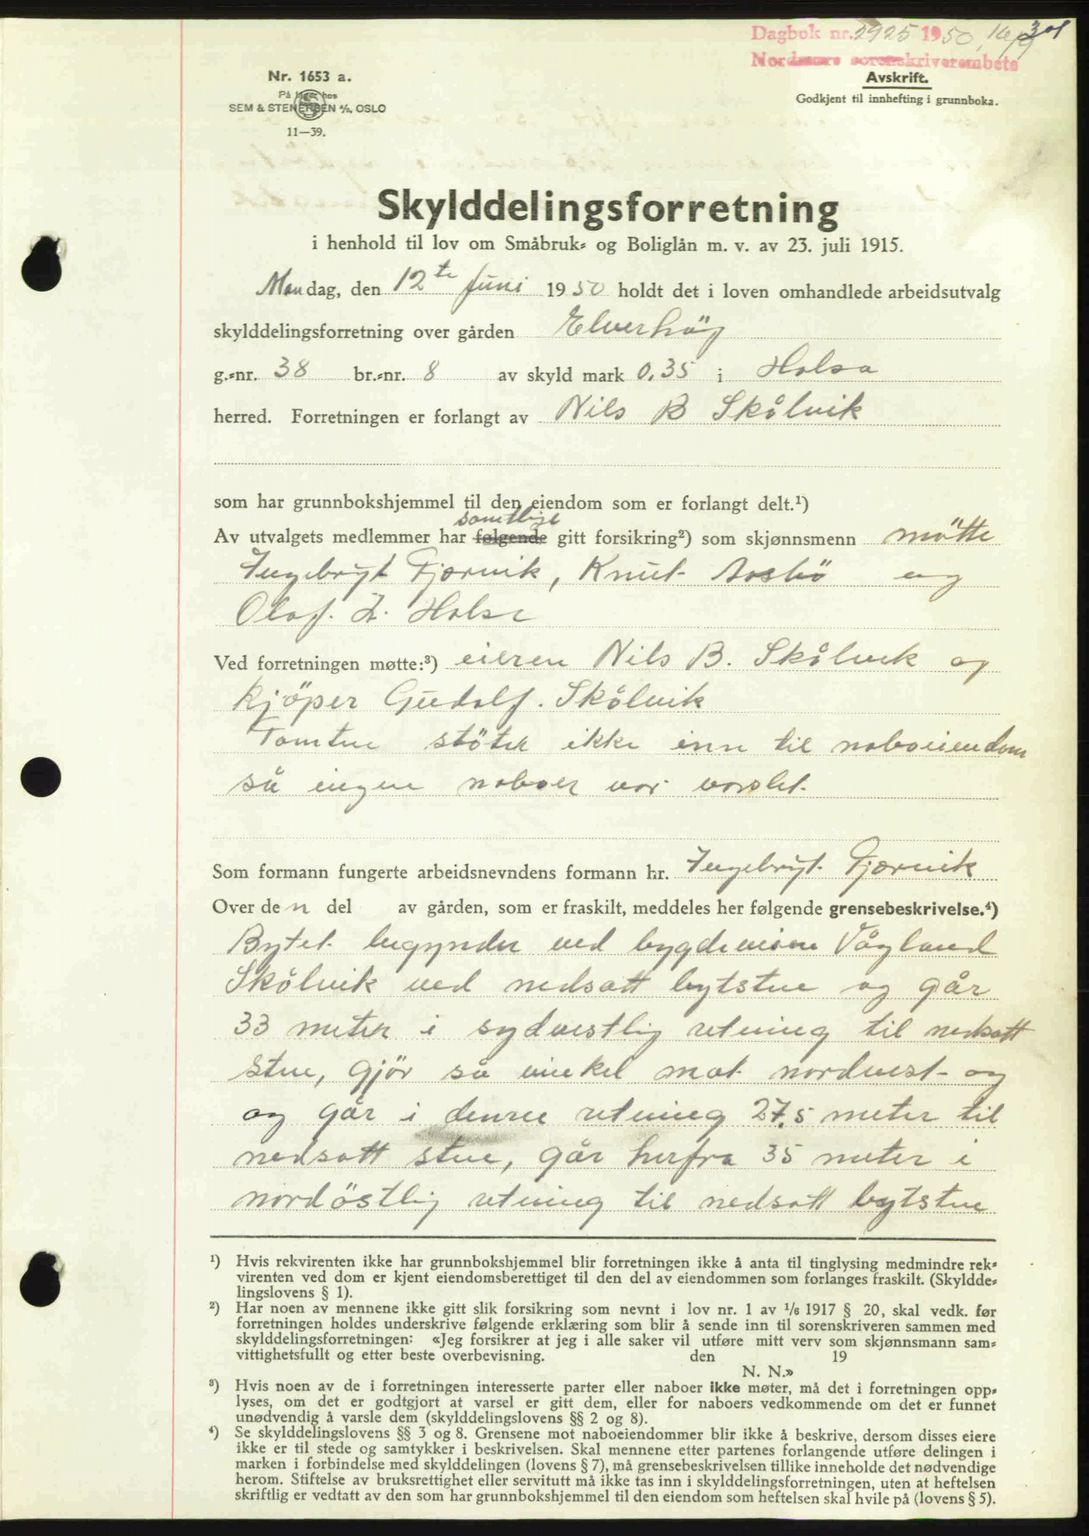 Dagbok nr. 2925 1950, 16/9 301
Nordmøre sorenskriverembete
Nr. 1653 a.
Avskrift.
På lager hos
SEM & STENERSEN A/S, OSLO
Godkjent til innhefting i grunnboka.
11—39.
Skylddelingsforretning
i henhold til lov om Småbruk- og Boliglån m. v. av 23. juli 1915.
Mandag, den 12te Juni 1950 holdt det i loven omhandlede arbeidsutvalg
skylddelingsforretning over gården Elverhöy
g.-nr. 38 br.-nr. 8 av skyld mark 0,35 i Halsa
herred. Forretningen er forlangt av Nils B Skålvik
som har grunnbokshjemmel til den eiendom som er forlangt delt.¹)
samtlige
Av utvalgets medlemmer har følgende gitt forsikring²) som skjønnsmenn mötte
Ingebrigt Gjærvik, Knut Aasbö og
Olaf. L. Halse
Ved forretningen møtte:³) eieren Nils B. Skålvik og
kjöper Gudolf. Skålvik
Tomten stöter ikke inn til naboeiendom
så ingen naboer var varslet.
Som formann fungerte arbeidsnevndens formann hr. Ingebrigt Gjærvik
Over den del av gården, som er fraskilt, meddeles her følgende grensebeskrivelse.⁴)
Bytet begynder ved bygdeveien Vågland
Skålvik ved nedsatt bytstue og går
33 meter i sydvestlig retning til nedsatt
stue, gjör så vinkel mot nordvest- og
og går i denne retning 27,5 meter til
nedsatt stue, går herfra 35 meter i
nordöstlig retning til nedsatt bytstue
¹) Hvis rekvirenten ikke har grunnbokshjemmel blir forretningen ikke å anta til tinglysing medmindre rek-
virenten ved dom er kjent eiendomsberettiget til den del av eiendommen som forlanges fraskilt. (Skyldde-
lingslovens § 1).
²) Har noen av mennene ikke gitt slik forsikring som nevnt i lov nr. 1 av 1/6 1917 § 20, skal vedk. før
forretningen holdes underskrive følgende erklæring som blir å sende inn til sorenskriveren sammen med
skylddelingsforretningen: «Jeg forsikrer at jeg i alle saker vil utføre mitt verv som skjønnsmann sam-
vittighetsfullt og etter beste overbevisning. den 19
N. N.»
³) Hvis noen av de i forretningen interesserte parter eller naboer ikke møter, må det i forretningen opp-
lyses, om det er godtgjort at varsel er gitt dem, eller for naboers vedkommende om det er funnet
unødvendig å varsle dem (skylddelingslovens §§ 2 og 8).
⁴) Se skylddelingslovens §§ 3 og 8. Grensene mot naboeiendommer blir ikke å beskrive, dersom disses eiere
ikke er til stede og samtykker i beskrivelsen. Skal mennene etter partenes forlangende utføre delingen i
marken i forbindelse med skylddelingen (lovens § 7), må grensebeskrivelsen tillike inneholde det nødvendige
herom. Stiftelse av bruksrettighet eller servitutt må ikke tas inn i skylddelingsforretningen, uten at heftelsen
skriftlig er vedtatt av den som har grunnbokshjemmel til den eiendom som heftelsen skal hvile på (lovens § 5).